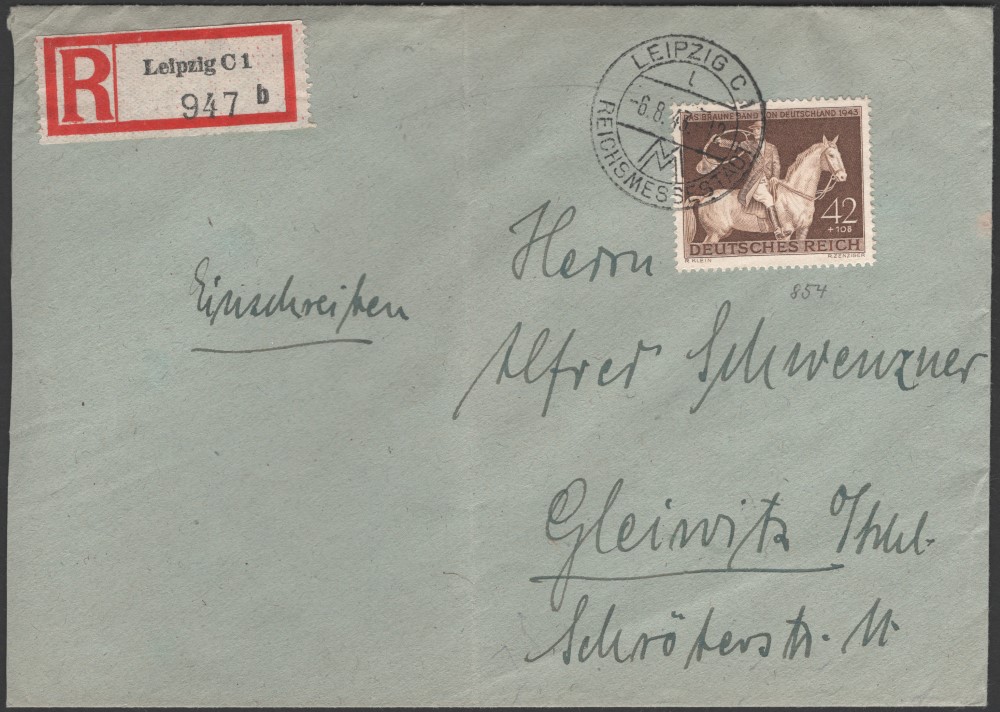 R Leipzig C 1
947 b
LEIPZIG C 1
-6.8.43
REICHSMESSESTADT
DAS BRAUNE BAND VON DEUTSCHLAND 1943
42
+108
DEUTSCHES REICH
R.KLEIN R.ZENZIGER
854
Einschreiben
Herrn
Alfred Schwenzner
Gleiwitz
Schröterstr. 11